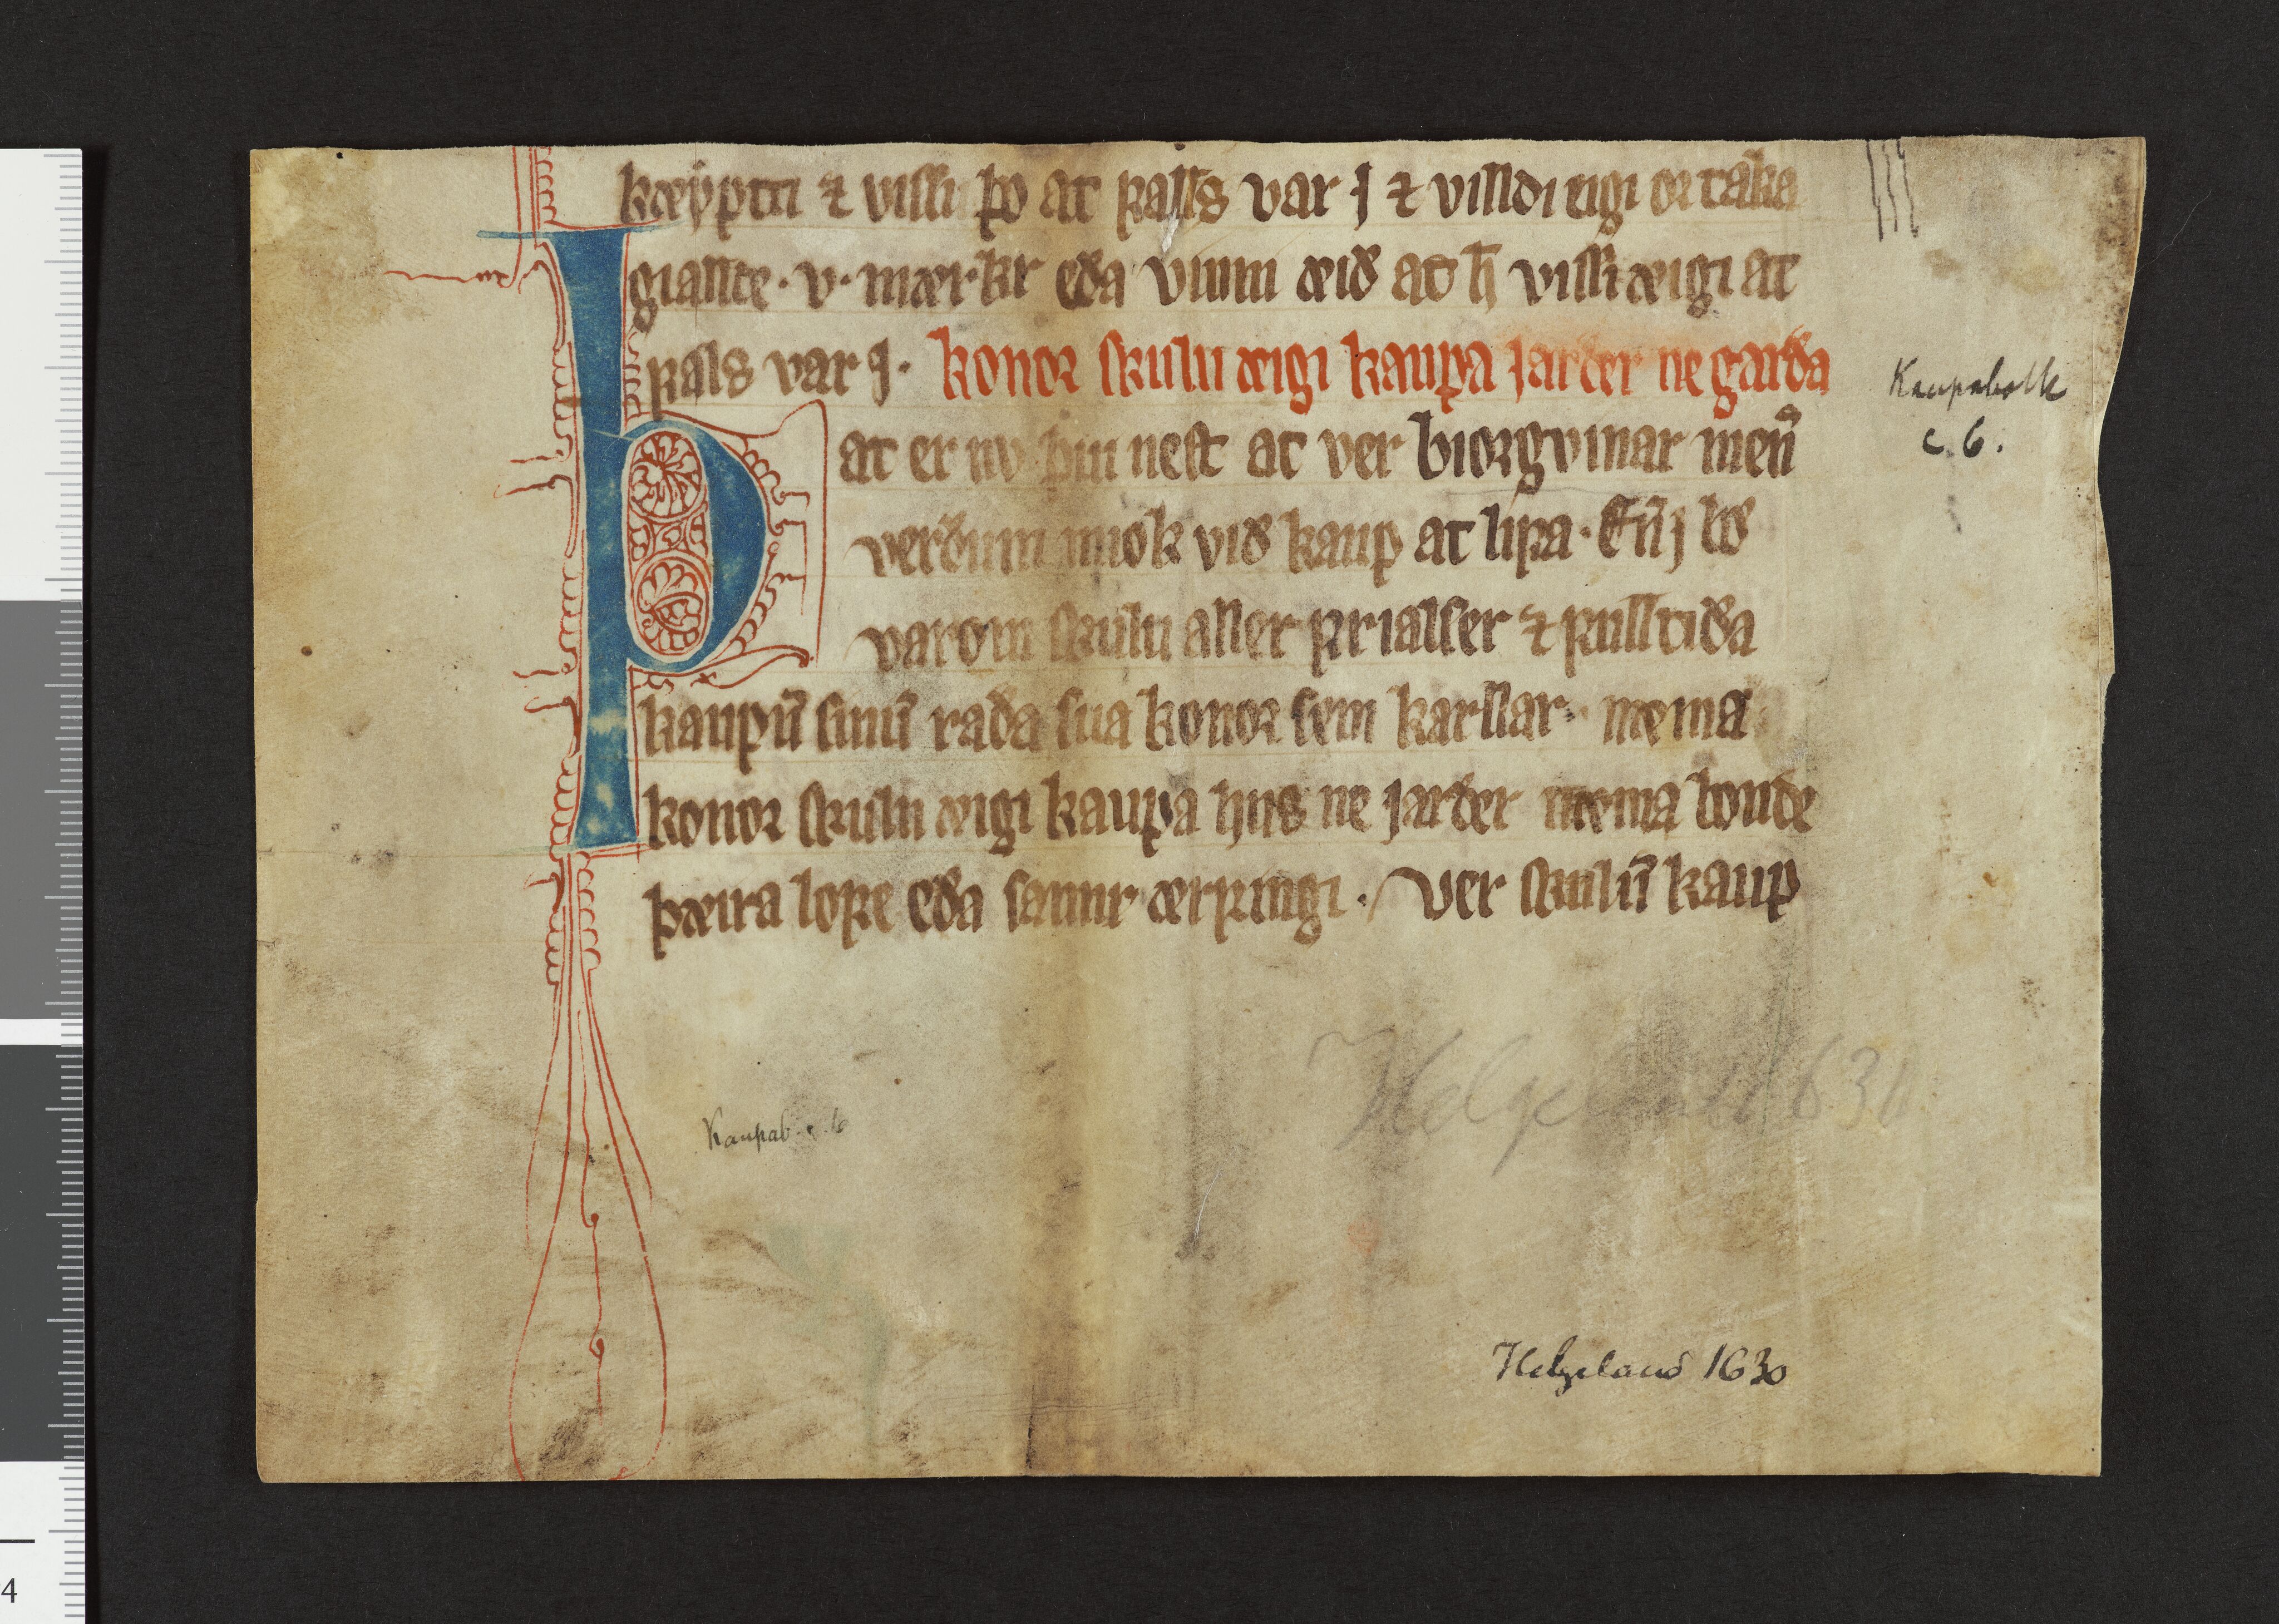 kœyptti ⁊ vissi þo at fals var j ⁊ villdi eigi or taka
giallde · v · mœrkr eða vinni œið at h̄ vissi œigi at
fals var j · konor skulu œigi kaupa jarðer ne garða
Kaupabolk
c. 6.
Þat er nv þui nest at ver biorgvinar men̄
verðum miok við kaup at lifa · En̄ j bœ
varom skulu aller frialser ⁊ fulltiða
kaupū sinū raða sua konor sem karllar · mœma
konor skulu œigi kaupa hus ne jarðer nœma bonde
þœira lofe eða sannr œrfingi · Ver skulū kaup
Kaupab. c. 6
Helgeland 1630
Helgeland 1630